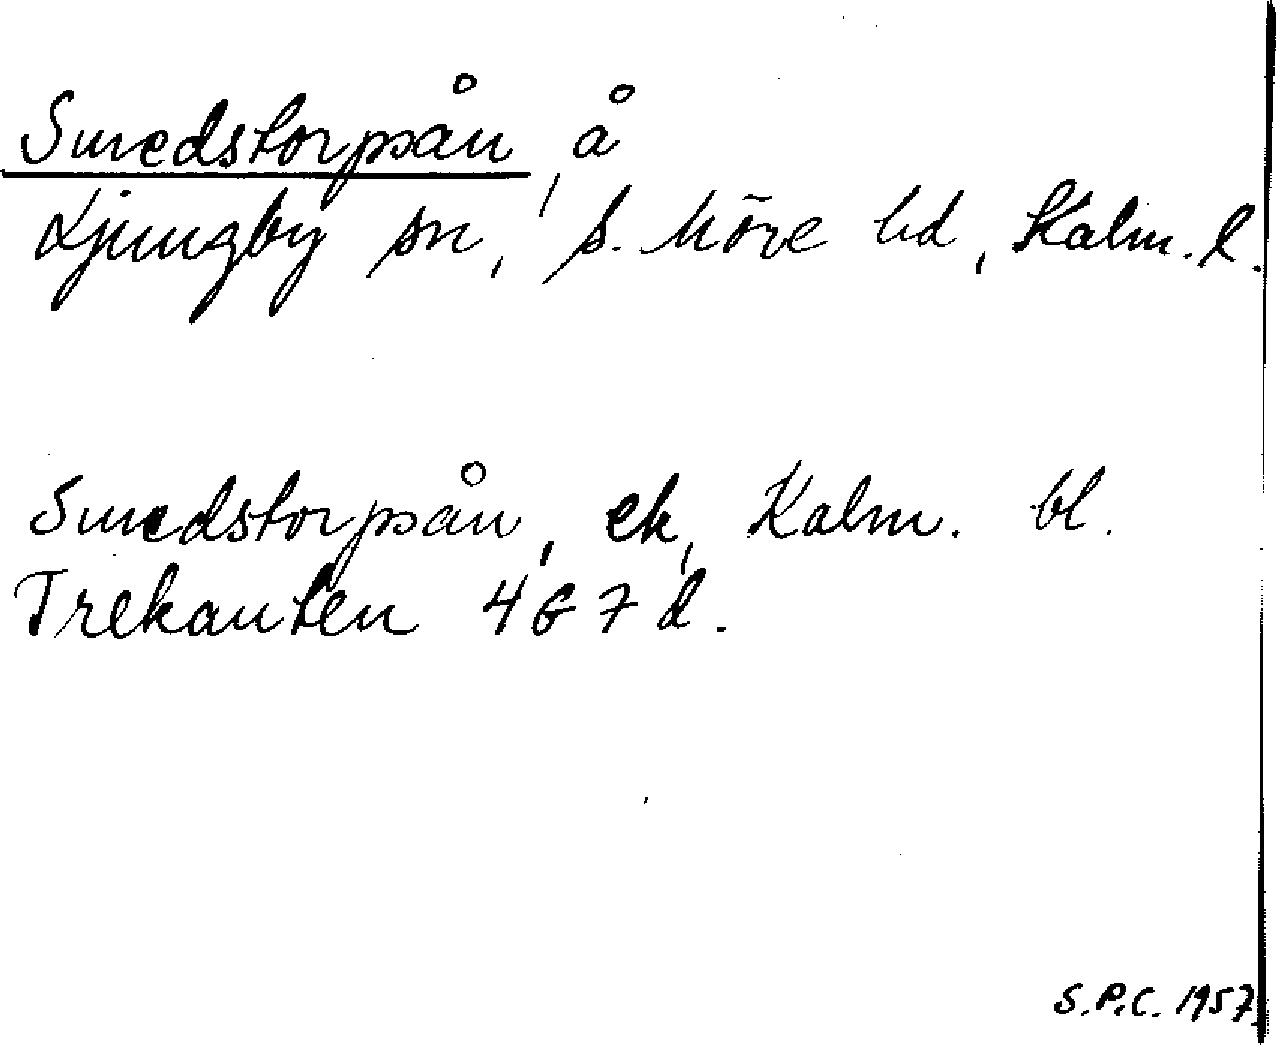 Smedstorpsån, å
Ljungby sn, S. Möre hd, Kalm. l.
Smedstorpsån, ek, Kalm. bl.
Trekanten 4G7d.
S.P.C. 1957.